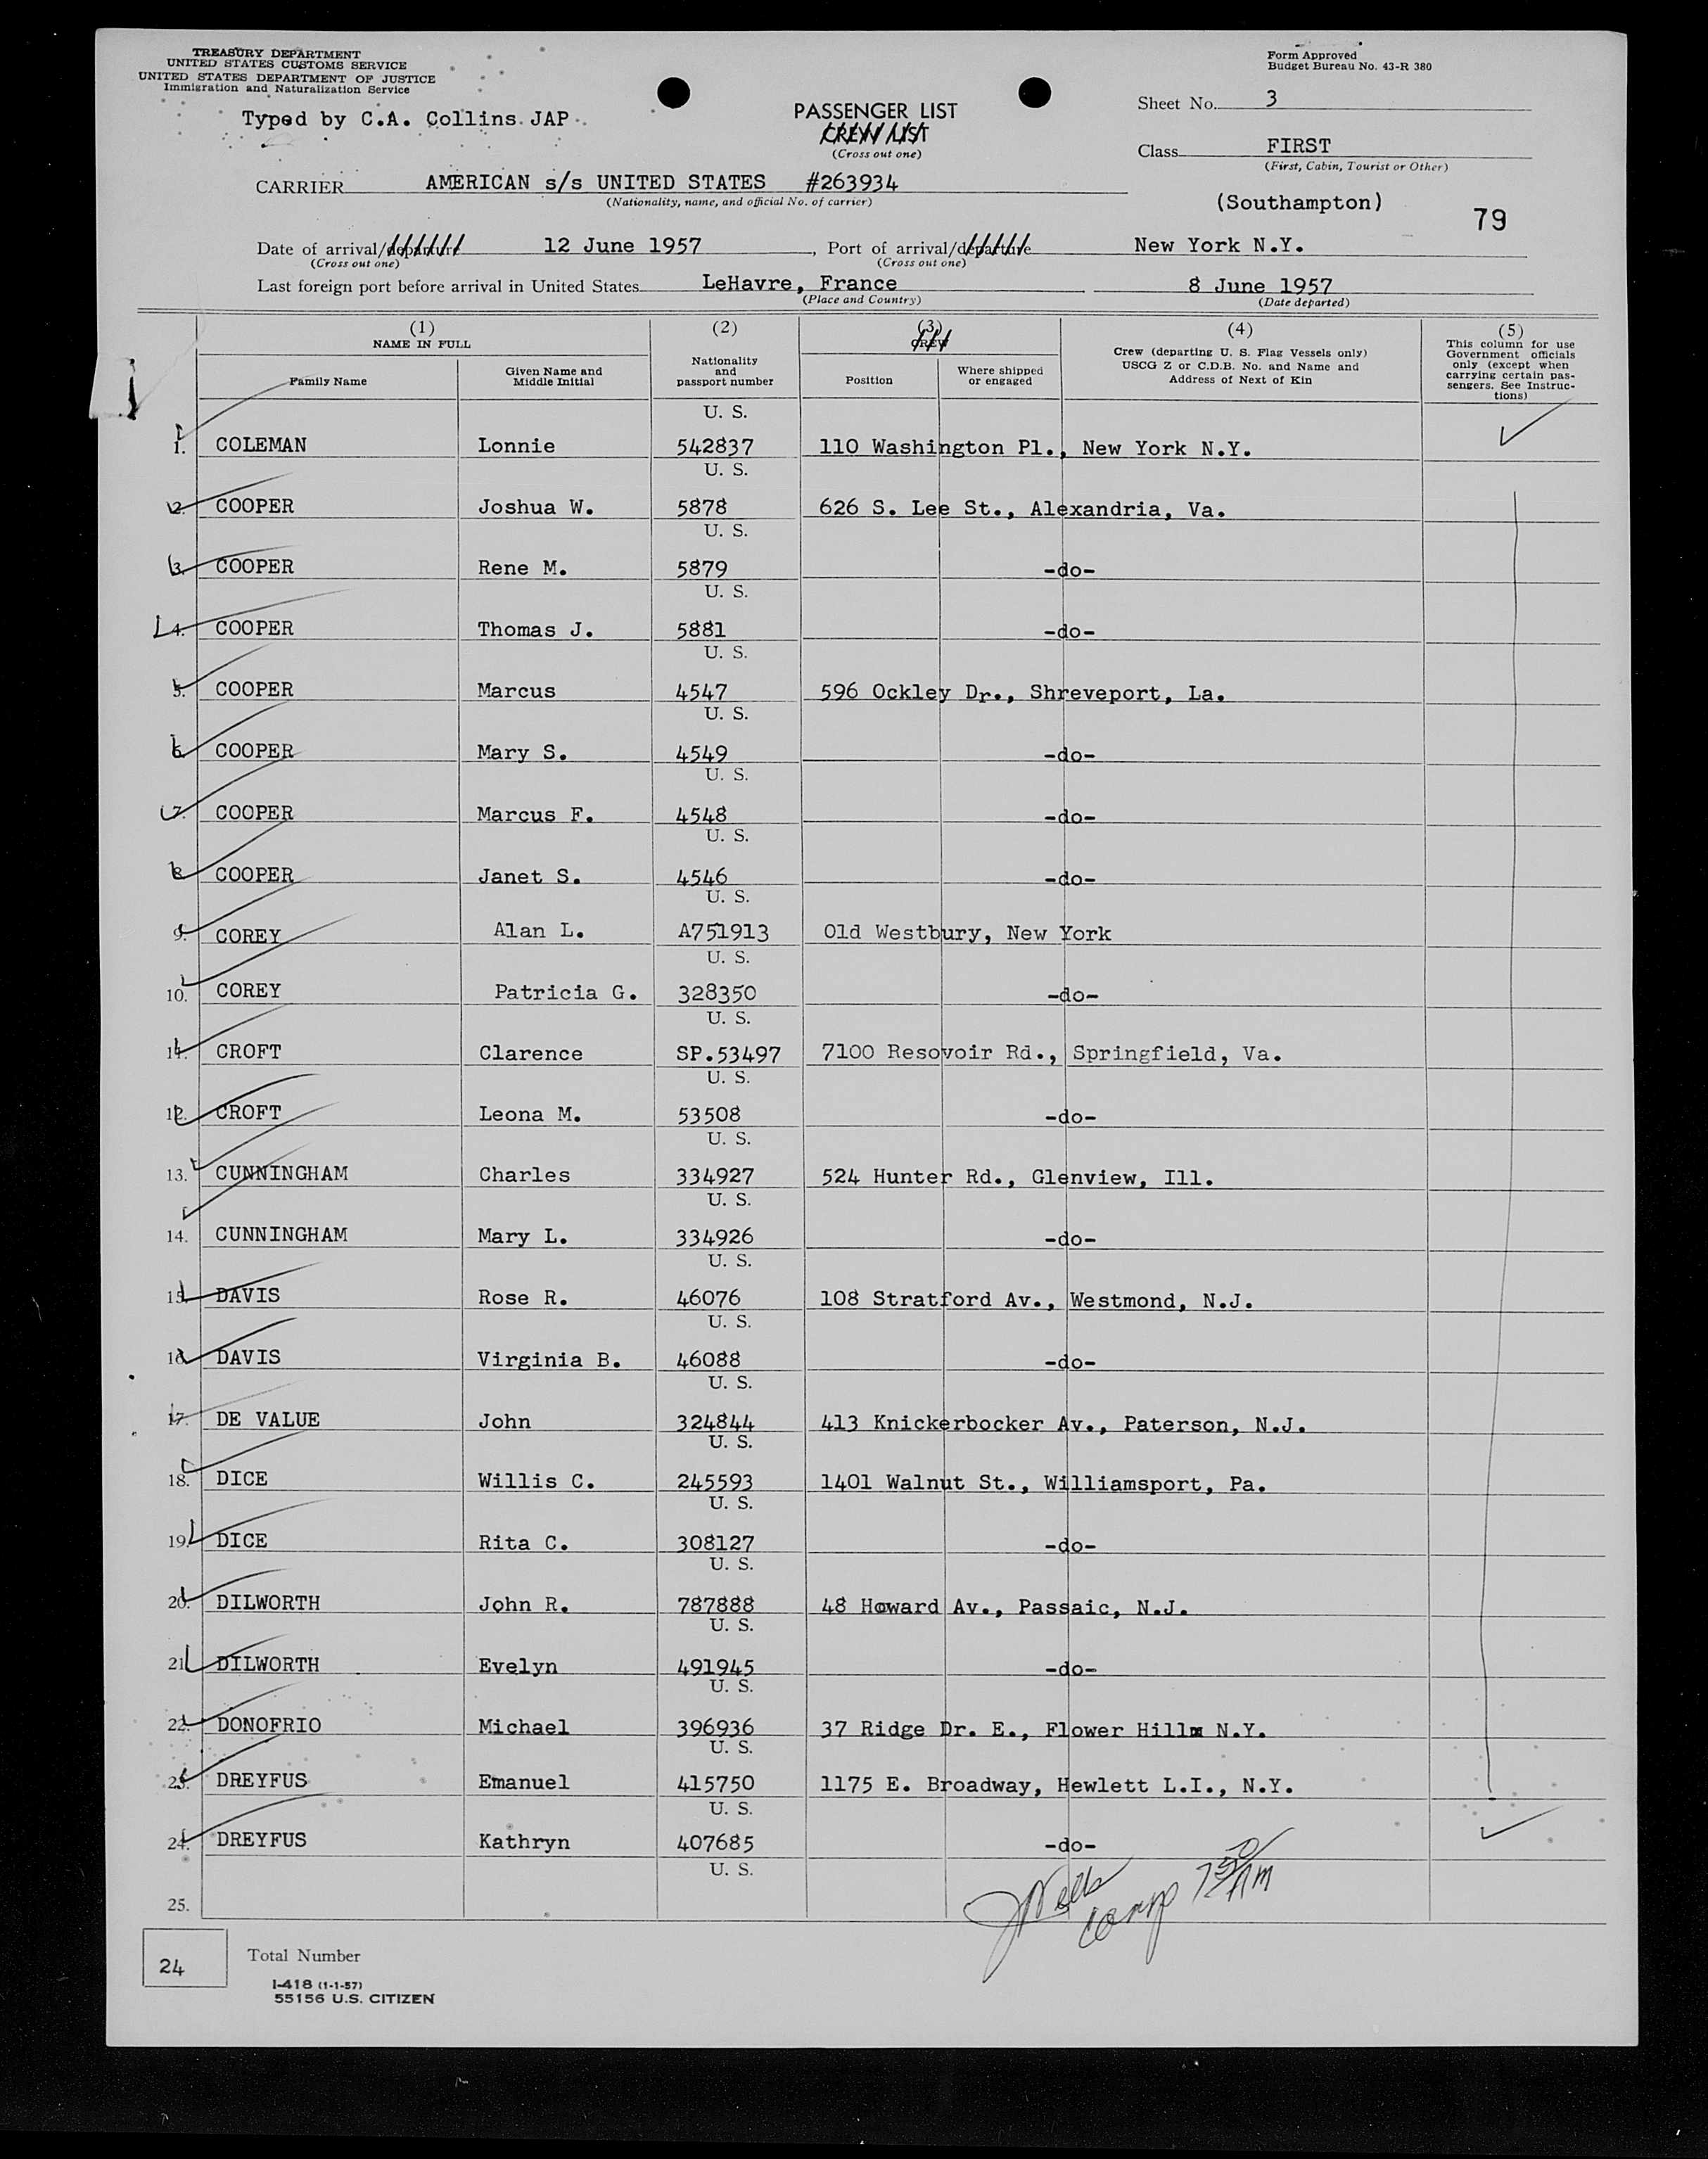 TREASURY DEPARTMENT
UNITED STATES CUSTOMS SERVICE
UNITED STATES DEPARTMENT OF JUSTICE
Immigration and Naturalization Service
Form Approved
Budget Bureau No. 43-R 380
Typed by C.A. Collins JAP
PASSENGER LIST
CREW LIST
(Cross out one)
Sheet No. 3
Class FIRST
(First, Cabin, Tourist or Other)
CARRIER AMERICAN s/s UNITED STATES #263934
(Nationality, name, and official No. of carrier)
(Southampton)
79
Date of arrival/departure 12 June 1957, Port of arrival/departure New York N.Y.
(Cross out one) (Cross out one)
Last foreign port before arrival in United States LeHavre, France 8 June 1957
(Place and Country) (Date departed)
(1) (2) (3) (4) (5)
NAME IN FULL
Family Name
Given Name and Middle Initial
Nationality and passport number
CREW
Position
Where shipped or engaged
Crew (departing U. S. Flag Vessels only) USCG Z or C.D.B. No. and Name and Address of Next of Kin
This column for use Government officials only (except when carrying certain passengers. See Instructions)
U. S.
1. COLEMAN Lonnie 542837 110 Washington Pl., New York N.Y.
U. S.
2. COOPER Joshua W. 5878 626 S. Lee St., Alexandria, Va.
U. S.
3. COOPER Rene M. 5879 -do-
U. S.
4. COOPER Thomas J. 5881 -do-
U. S.
5. COOPER Marcus 4547 596 Ockley Dr., Shreveport, La.
U. S.
6. COOPER Mary S. 4549 -do-
U. S.
7. COOPER Marcus F. 4548 -do-
U. S.
8. COOPER Janet S. 4546 -do-
U. S.
9. COREY Alan L. A751913 Old Westbury, New York
U. S.
10. COREY Patricia G. 328350 -do-
U. S.
11. CROFT Clarence SP.53497 7100 Resovoir Rd., Springfield, Va.
U. S.
12. CROFT Leona M. 53508 -do-
U. S.
13. CUNNINGHAM Charles 334927 524 Hunter Rd., Glenview, Ill.
U. S.
14. CUNNINGHAM Mary L. 334926 -do-
U. S.
15. DAVIS Rose R. 46076 108 Stratford Av., Westmond, N.J.
U. S.
16. DAVIS Virginia B. 46088 -do-
U. S.
17. DE VALUE John 324844 413 Knickerbocker Av., Paterson, N.J.
U. S.
18. DICE Willis C. 245593 1401 Walnut St., Williamsport, Pa.
U. S.
19. DICE Rita C. 308127 -do-
U. S.
20. DILWORTH John R. 787888 48 Howard Av., Passaic, N.J.
U. S.
21. DILWORTH Evelyn 491945 -do-
U. S.
22. DONOFRIO Michael 396936 37 Ridge Dr. E., Flower Hill N.Y.
U. S.
23. DREYFUS Emanuel 415750 1175 E. Broadway, Hewlett L.I., N.Y.
U. S.
24. DREYFUS Kathryn 407685 -do-
U. S.
25.
24 Total Number
I-418 (1-1-57)
55156 U.S. CITIZEN